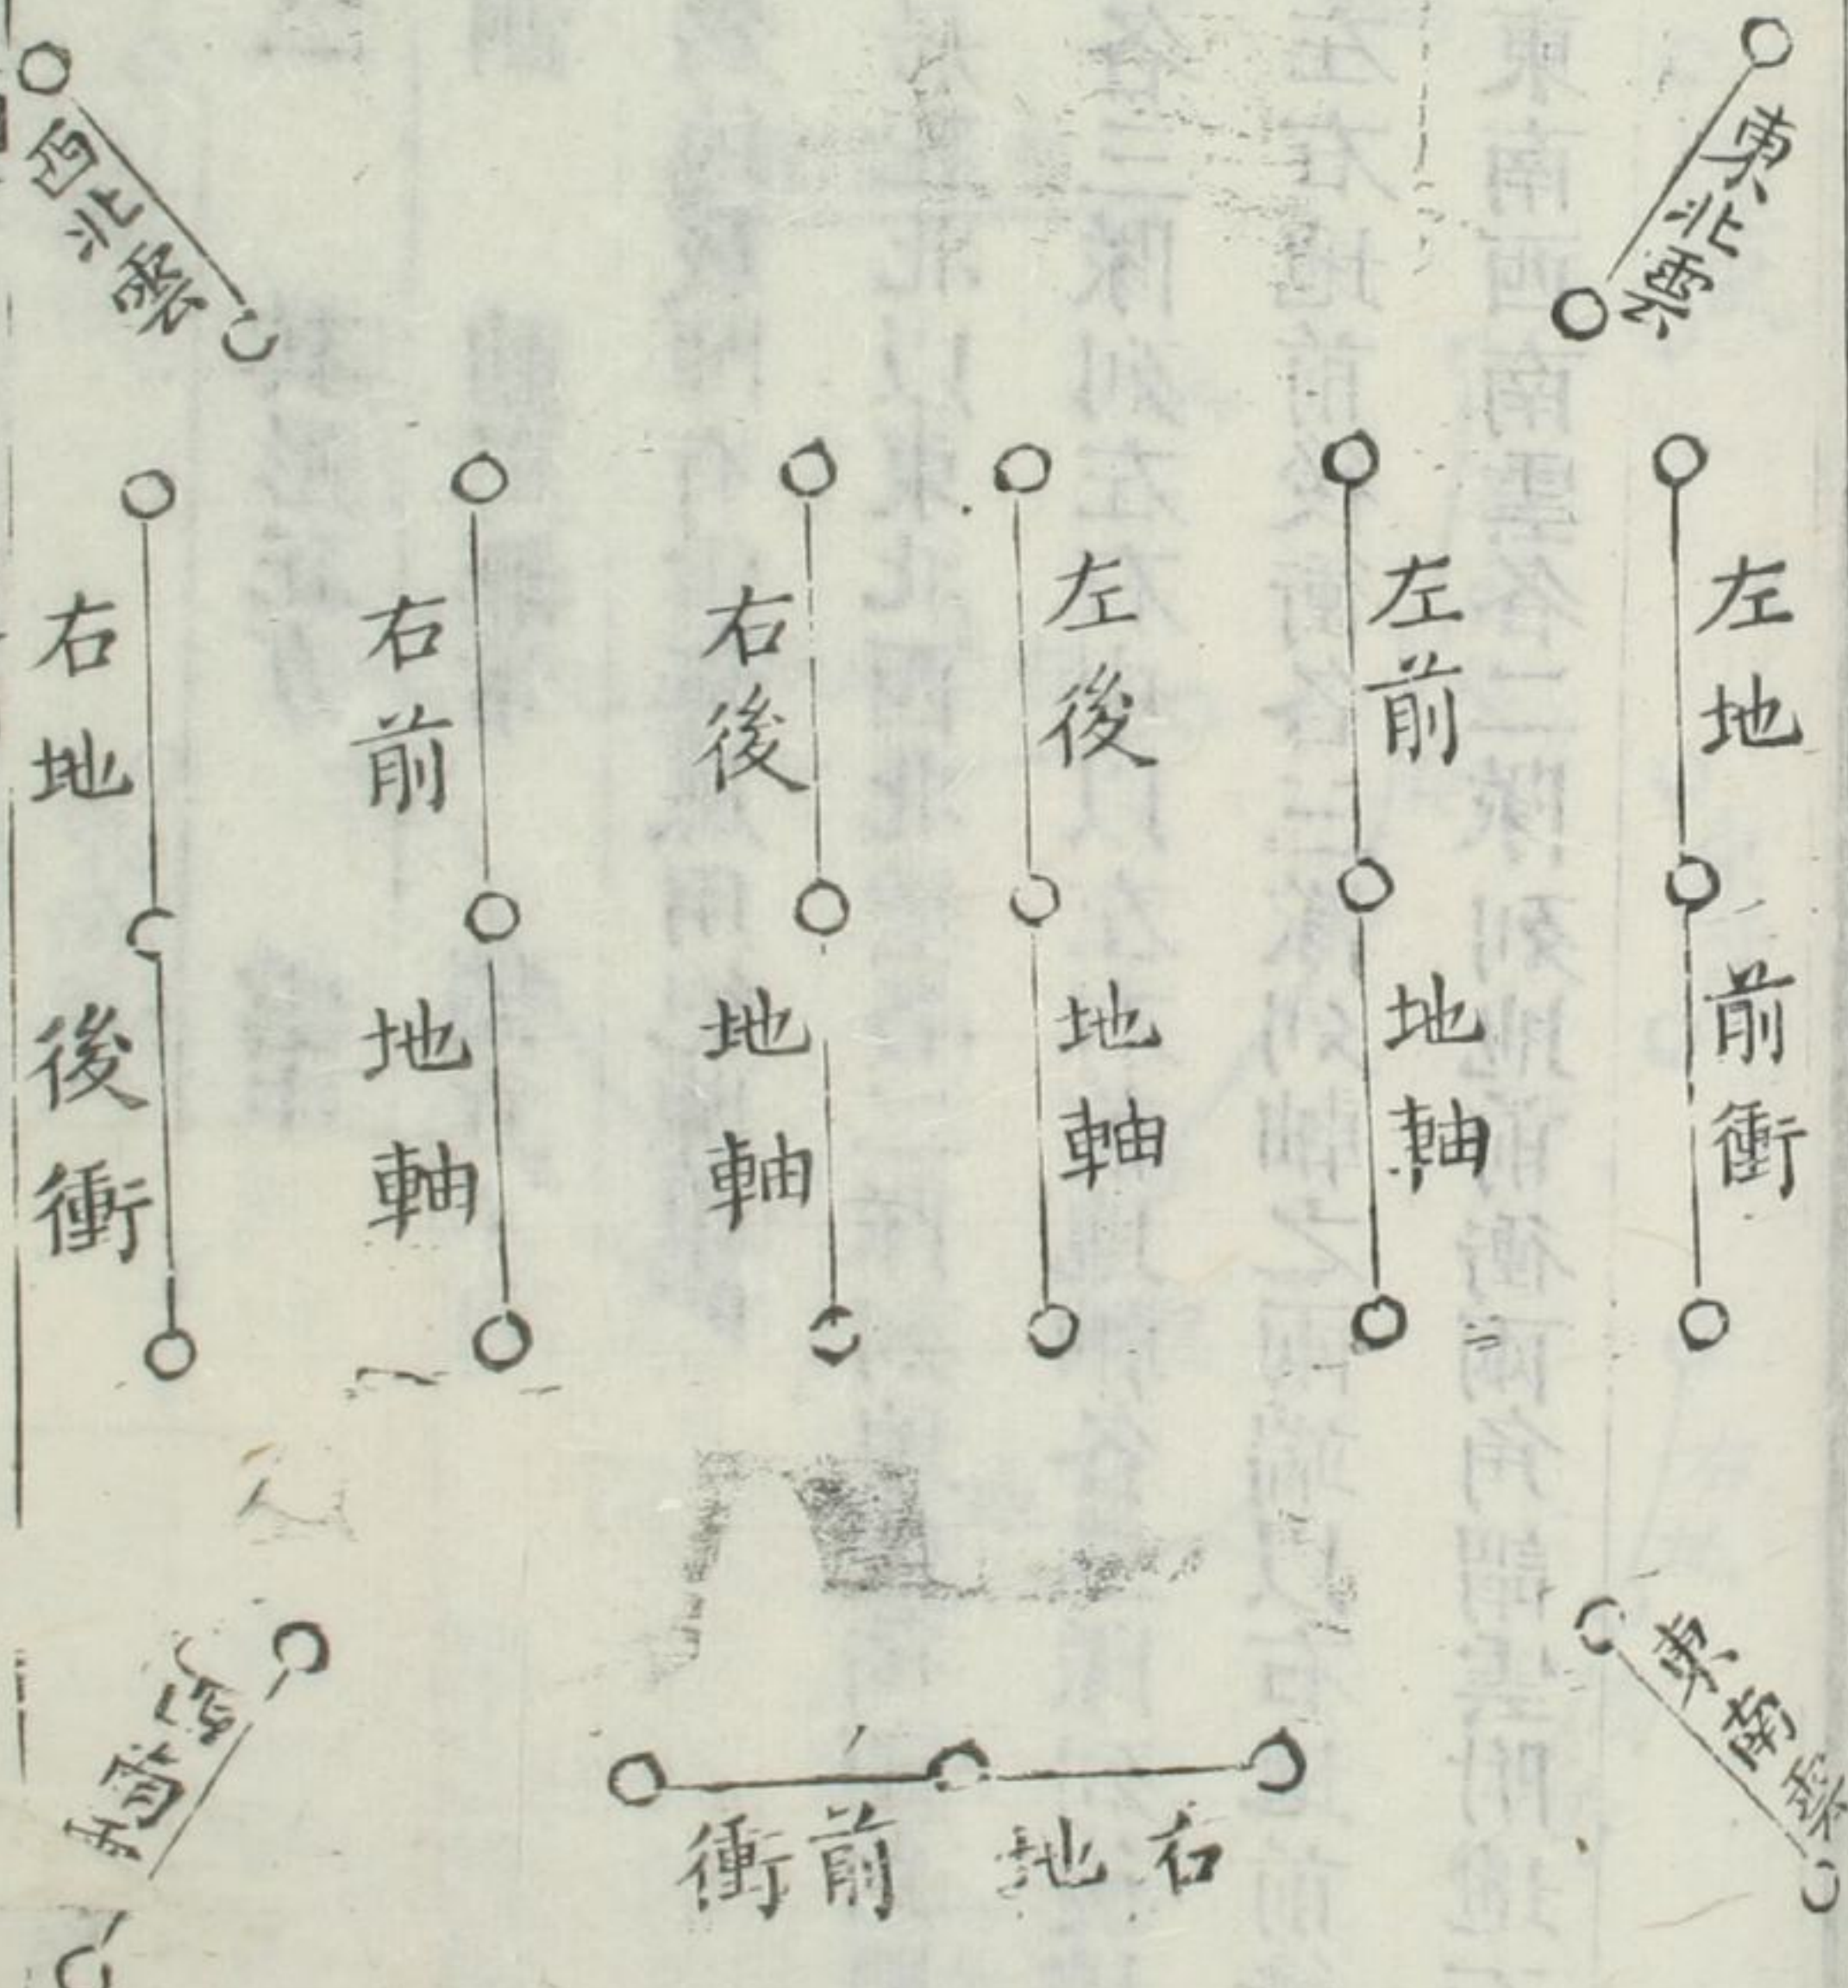 東北雲
西北雲
左地前衝
左前地軸
左後地軸
右後地軸
右前地軸
右地後衝
東南雲
右地前衝